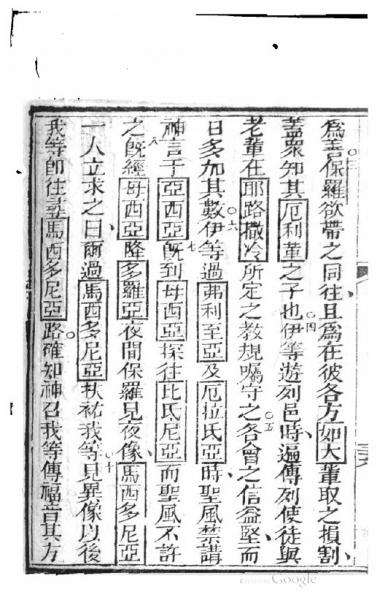 爲善保羅欲帶之同往且爲在彼各方如大輩取之損割
蓋衆知其厄利輩之子也四伊等遊列邑時遍傳列使徒與
老輩在耶路撒冷所定之教規囑守之五各會之信益堅而
日多加其數六伊等過弗利至亞及厄拉氏亞時聖風禁講
神言于亞西亞七旣到母西亞探往比氏尼亞而聖風不許
之八旣經母西亞降多羅亞九夜間保羅見夜像馬西多尼亞
一人立求之曰爾過馬西多尼亞扶祐我等十見異像以後
我等卽往 馬西多尼亞路確知神召我等傳福音其方
Google